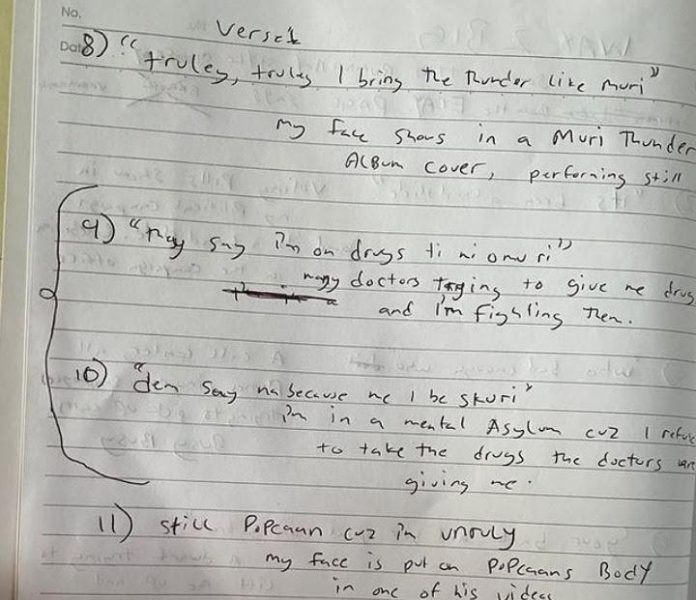 No.
Verse 1
Dat
8) "truley, truley I bring the thunder like muri"
my face shows in a Muri Thunder
AlBum cover, performing still
9) "they say i'm on drugs ti ni omu ri"
many doctors trying to give me drug
and I'm fighting them.
10) "dem say na because me I be skuri"
i'm in a mental Asylum cuz I refuse
to take the drugs the doctors are
giving me.
11) still PoPcaan cuz i'm unruly
my face is put on PoPcaans Body
in one of his videos